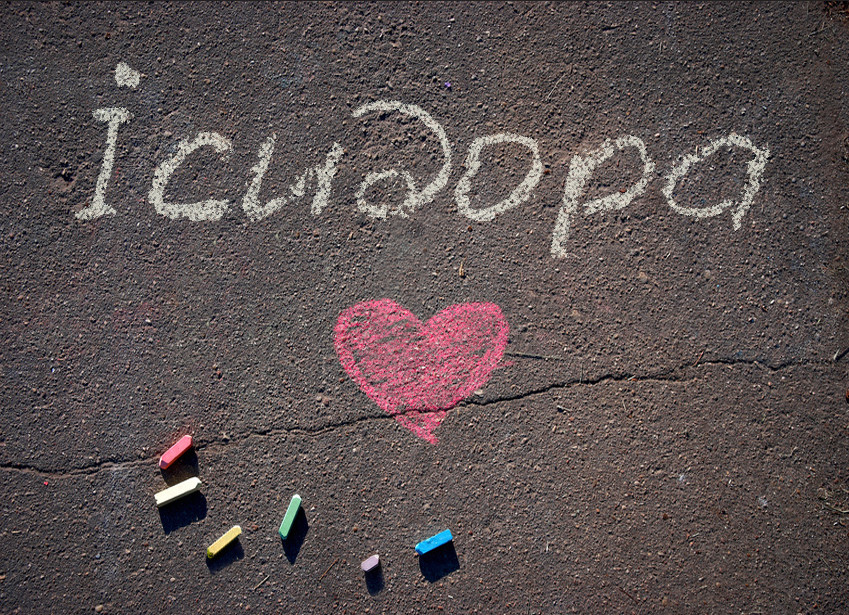 ісидора